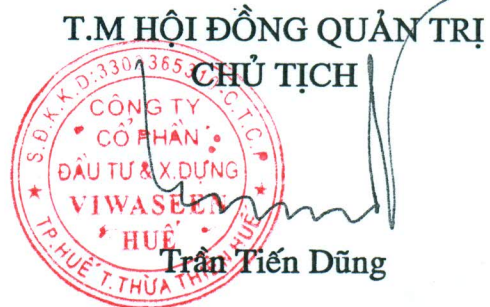 T.M HỘI ĐỒNG QUẢN TRỊ
CHỦ TỊCH
CÔNG TY
CỔ PHẦN
ĐẦU TƯ & X.DỰNG
VIWASEEN
HUẾ
TP.HUẾ T.THỪA THIÊN HUẾ
Trần Tiến Dũng